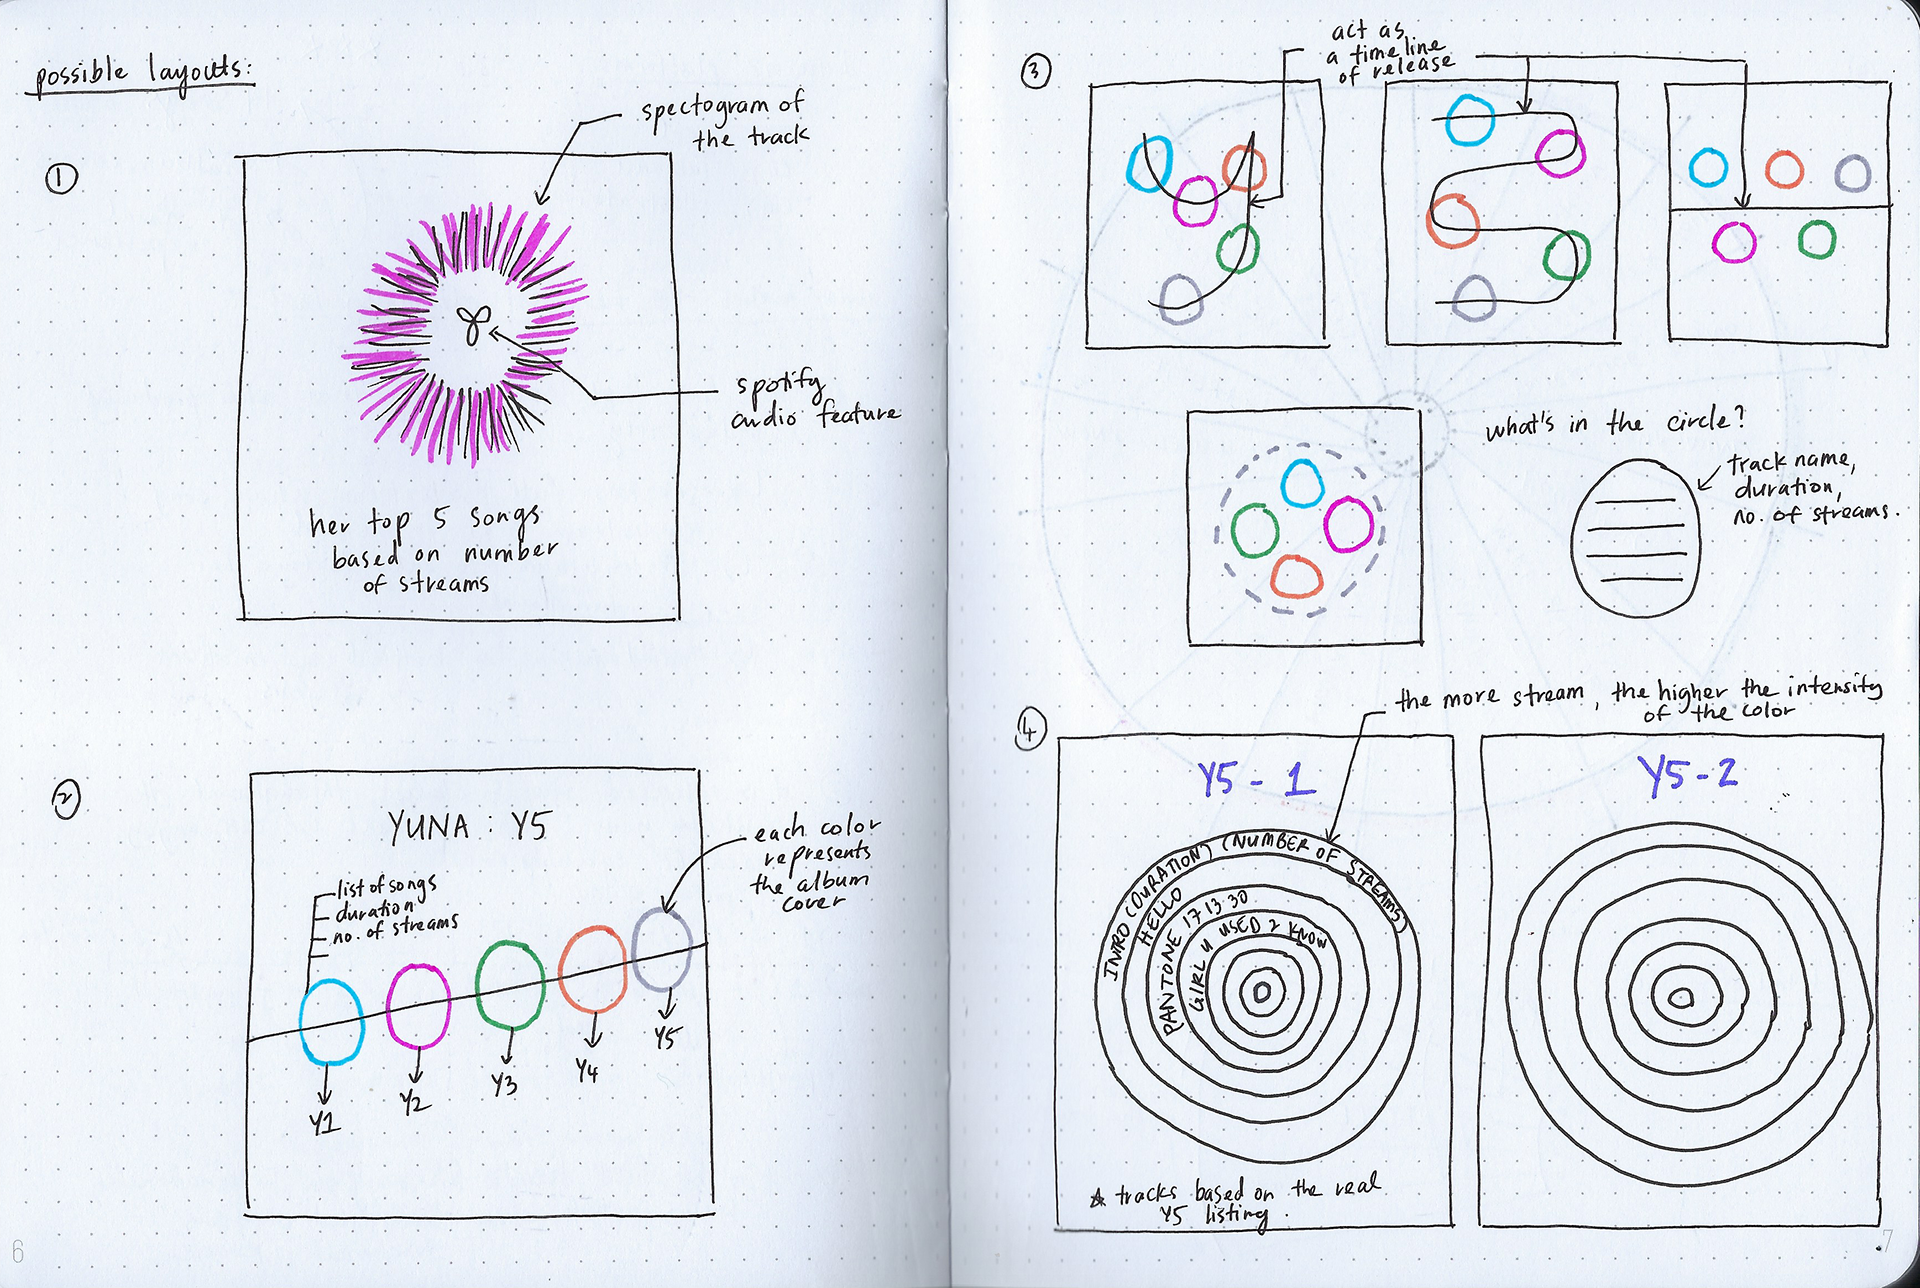 possible layouts:
①
spectogram of
the track
spotify
audio feature
her top 5 songs
based on number
of streams
②
YUNA : Y5
list of songs
duration
no. of streams
each color
represents
the album
cover
Y1
Y2
Y3
Y4
Y5
6
③
act as
a timeline
of release
what's in the circle?
track name,
duration,
no. of streams.
④
the more stream, the higher the intensity
of the color
Y5 - 1
INTRO (DURATION) (NUMBER OF STREAMS)
HELLO
PANTONE 17 13 30
GIRL U USED 2 KNOW
☆ tracks based on the real
Y5 listing.
Y5 - 2
7